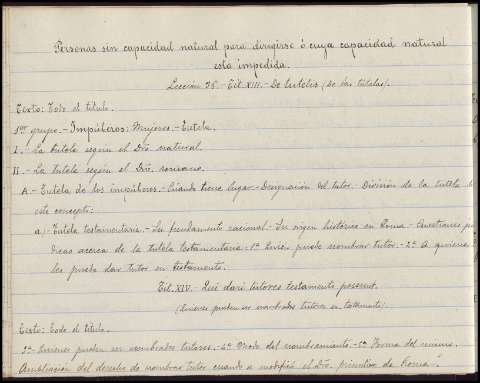 Personas sin capacidad natural para dirigirse ó cuya capacidad natural
está impedida.
Lección 28.- Tit. XIII.- De tutelis (De las tutelas).
Texto: Todo el título.
1er grupo.- Impúberos: Mujeres.- Tutela.
I.- La tutela según el Dro. natural.
II.- La tutela según el Dro. romano.
A.- Tutela de los impúberes.- Cuándo tiene lugar.- Designación del tutor. División de la tutela
este concepto:
a).- Tutela testamentaria.- Su fundamento racional.- Su origen histórico en Roma.- Cuestiones
dicas acerca de la tutela testamentaria: 1ª Quien puede nombrar tutor.- 2ª A quienes
les puede dar tutor en testamento.
Tit. XIV. Qui dari tutores testamento possunt.
(Quienes pueden ser nombrados tutores en testamento)
Texto: Todo el título.
3ª Quienes pueden ser nombrados tutores.- 4ª Modo del nombramiento.- 5ª Forma del mismo.
Ampliación del derecho de nombrar tutor cuando se modificó el Dro. primitivo de Roma.